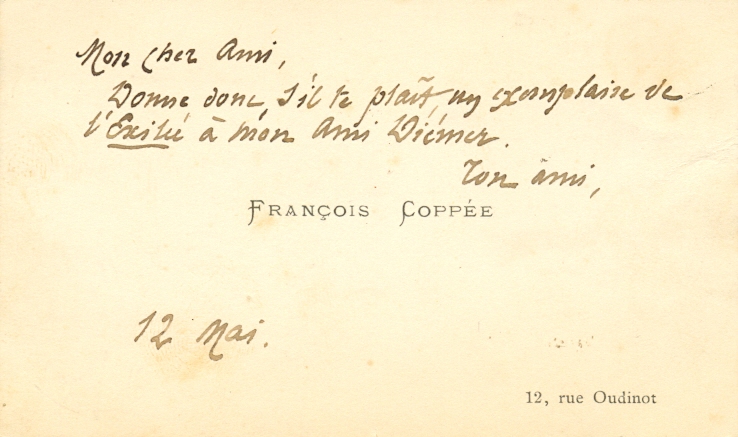 Mon cher Ami,
Donne donc, s'il te plaît, un exemplaire de
l'Exilée à mon Ami Diémer.
Ton ami,
FRANÇOIS COPPÉE
12 Mai.
12, rue Oudinot